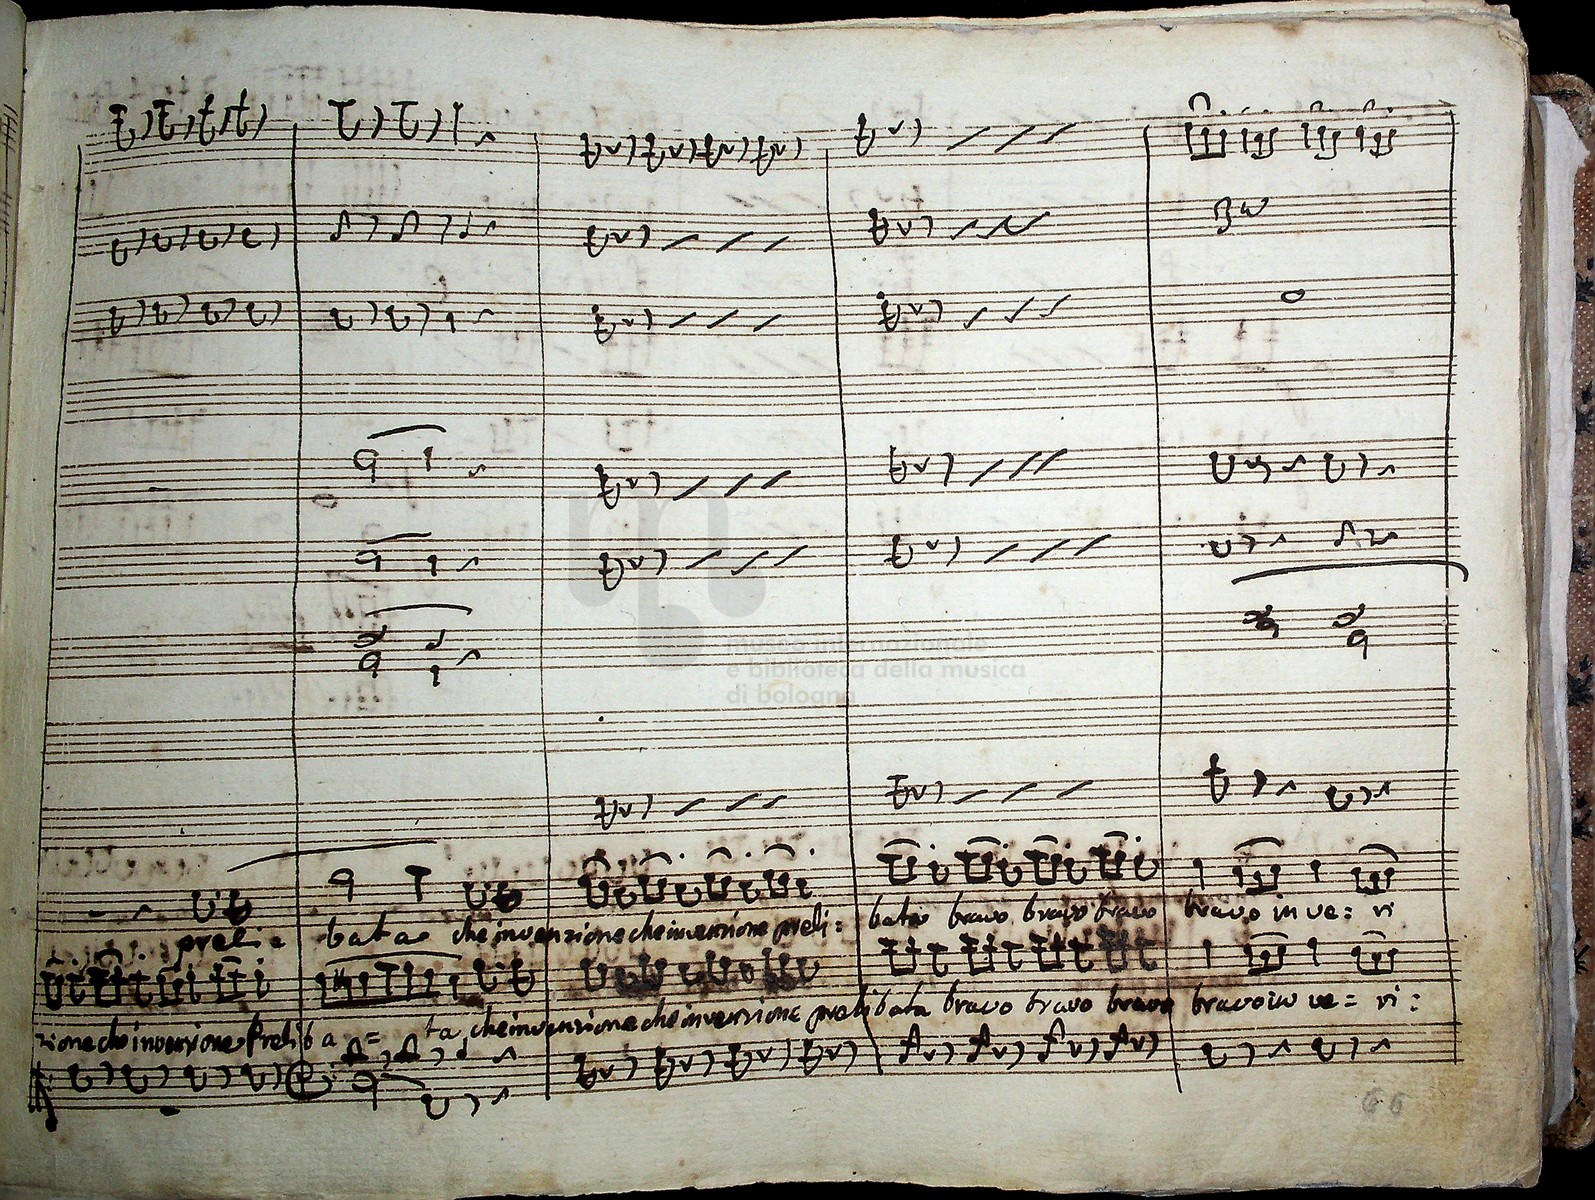 museo internazionale
e biblioteca della musica
di bologna
preli = bata che invenzione che invenzione preli: bata bravo bravo bravo bravo in ve: ri
zione che invenzione Preliba = ta che invenzione che invenzione prelibata bravo bravo bravo bravo in ve = ri:
66